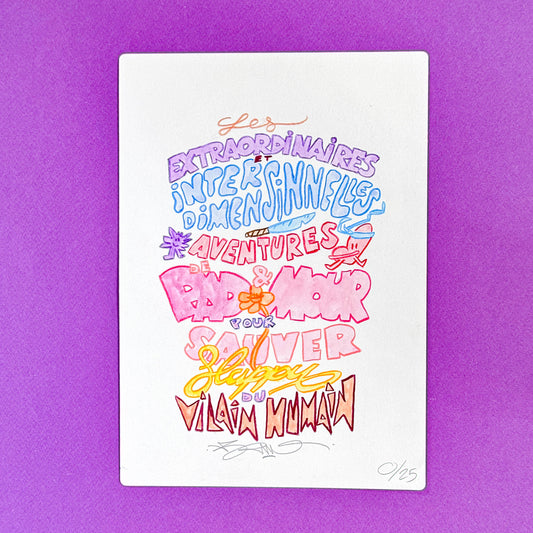 Les
EXTRAORDiNAiRES
ET
iNTER
DiMENSiNNELLES
AVENTURES
DE &
PAD MOUR
POUR
SAUVER
Flappy
DU
ViLAiN HUMAiN
0/25